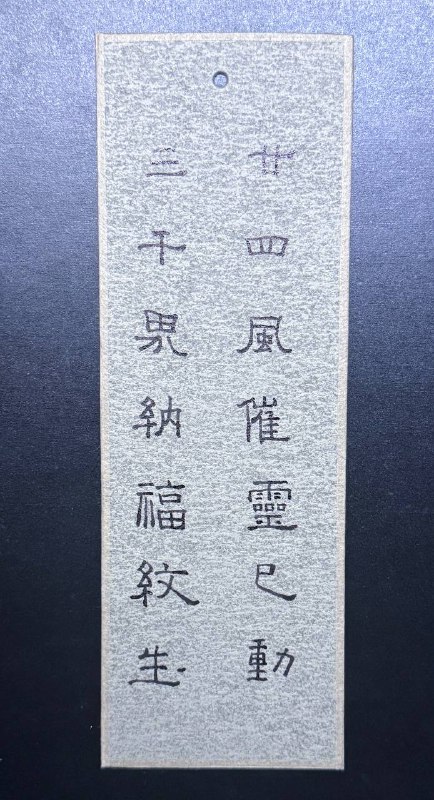 廿四風催靈巳動
三千界納福紋生